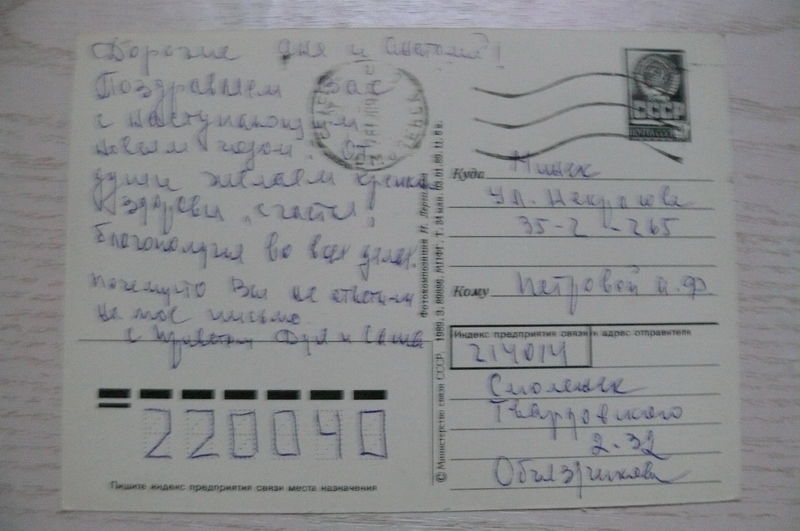 Дорогие Аня и Анатолий!
Поздравляем Вас
с наступающим
новым годом. От
души желаем крепкого
здоровья, счастья,
благополучия во всех делах.
почему-то Вы не ответили
на мое письмо.
с приветом Дуся и Саша
СССР
ПОЧТА СССР
Куда Минск
ул. Некрасова
35-2-265
Кому Петровой А.Ф.
Индекс предприятия связи и адрес отправителя
214014
Смоленск
Твардовского
2-32
220040
Пишите индекс предприятия связи места назначения
© Министерство связи СССР. 1989. З. 80086. МПФГ.
Фотокомпозиция И.